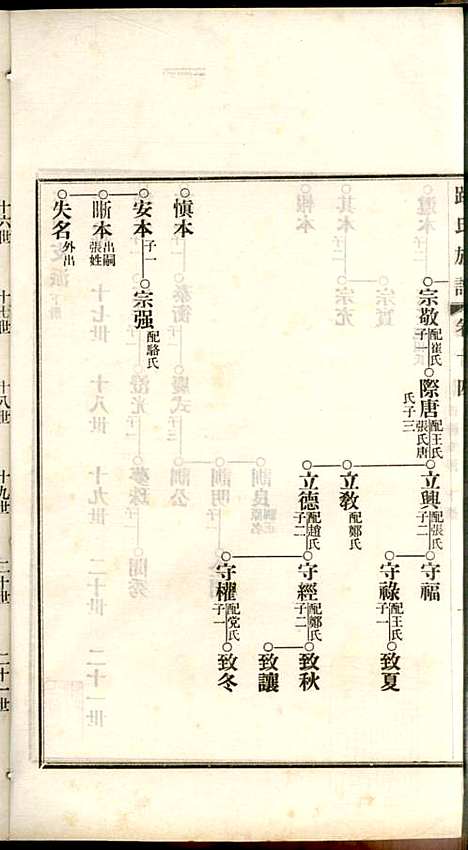 路氏族譜 卷十四
宗敬 配崔氏 子一
際唐 配王氏 張氏唐氏 子三
立興 配張氏 子二
守福
守祿 配王氏 子一
致夏
立敎 配鄭氏
立德 配趙氏 子二
守經 配鄭氏 子二
致秋
致讓
守權 配党氏 子一
致冬
愼本
安本 子一
宗强 配駱氏
晰本 出嗣張姓
失名 外出
十六世
十七世
十八世
十九世
二十世
二十一世